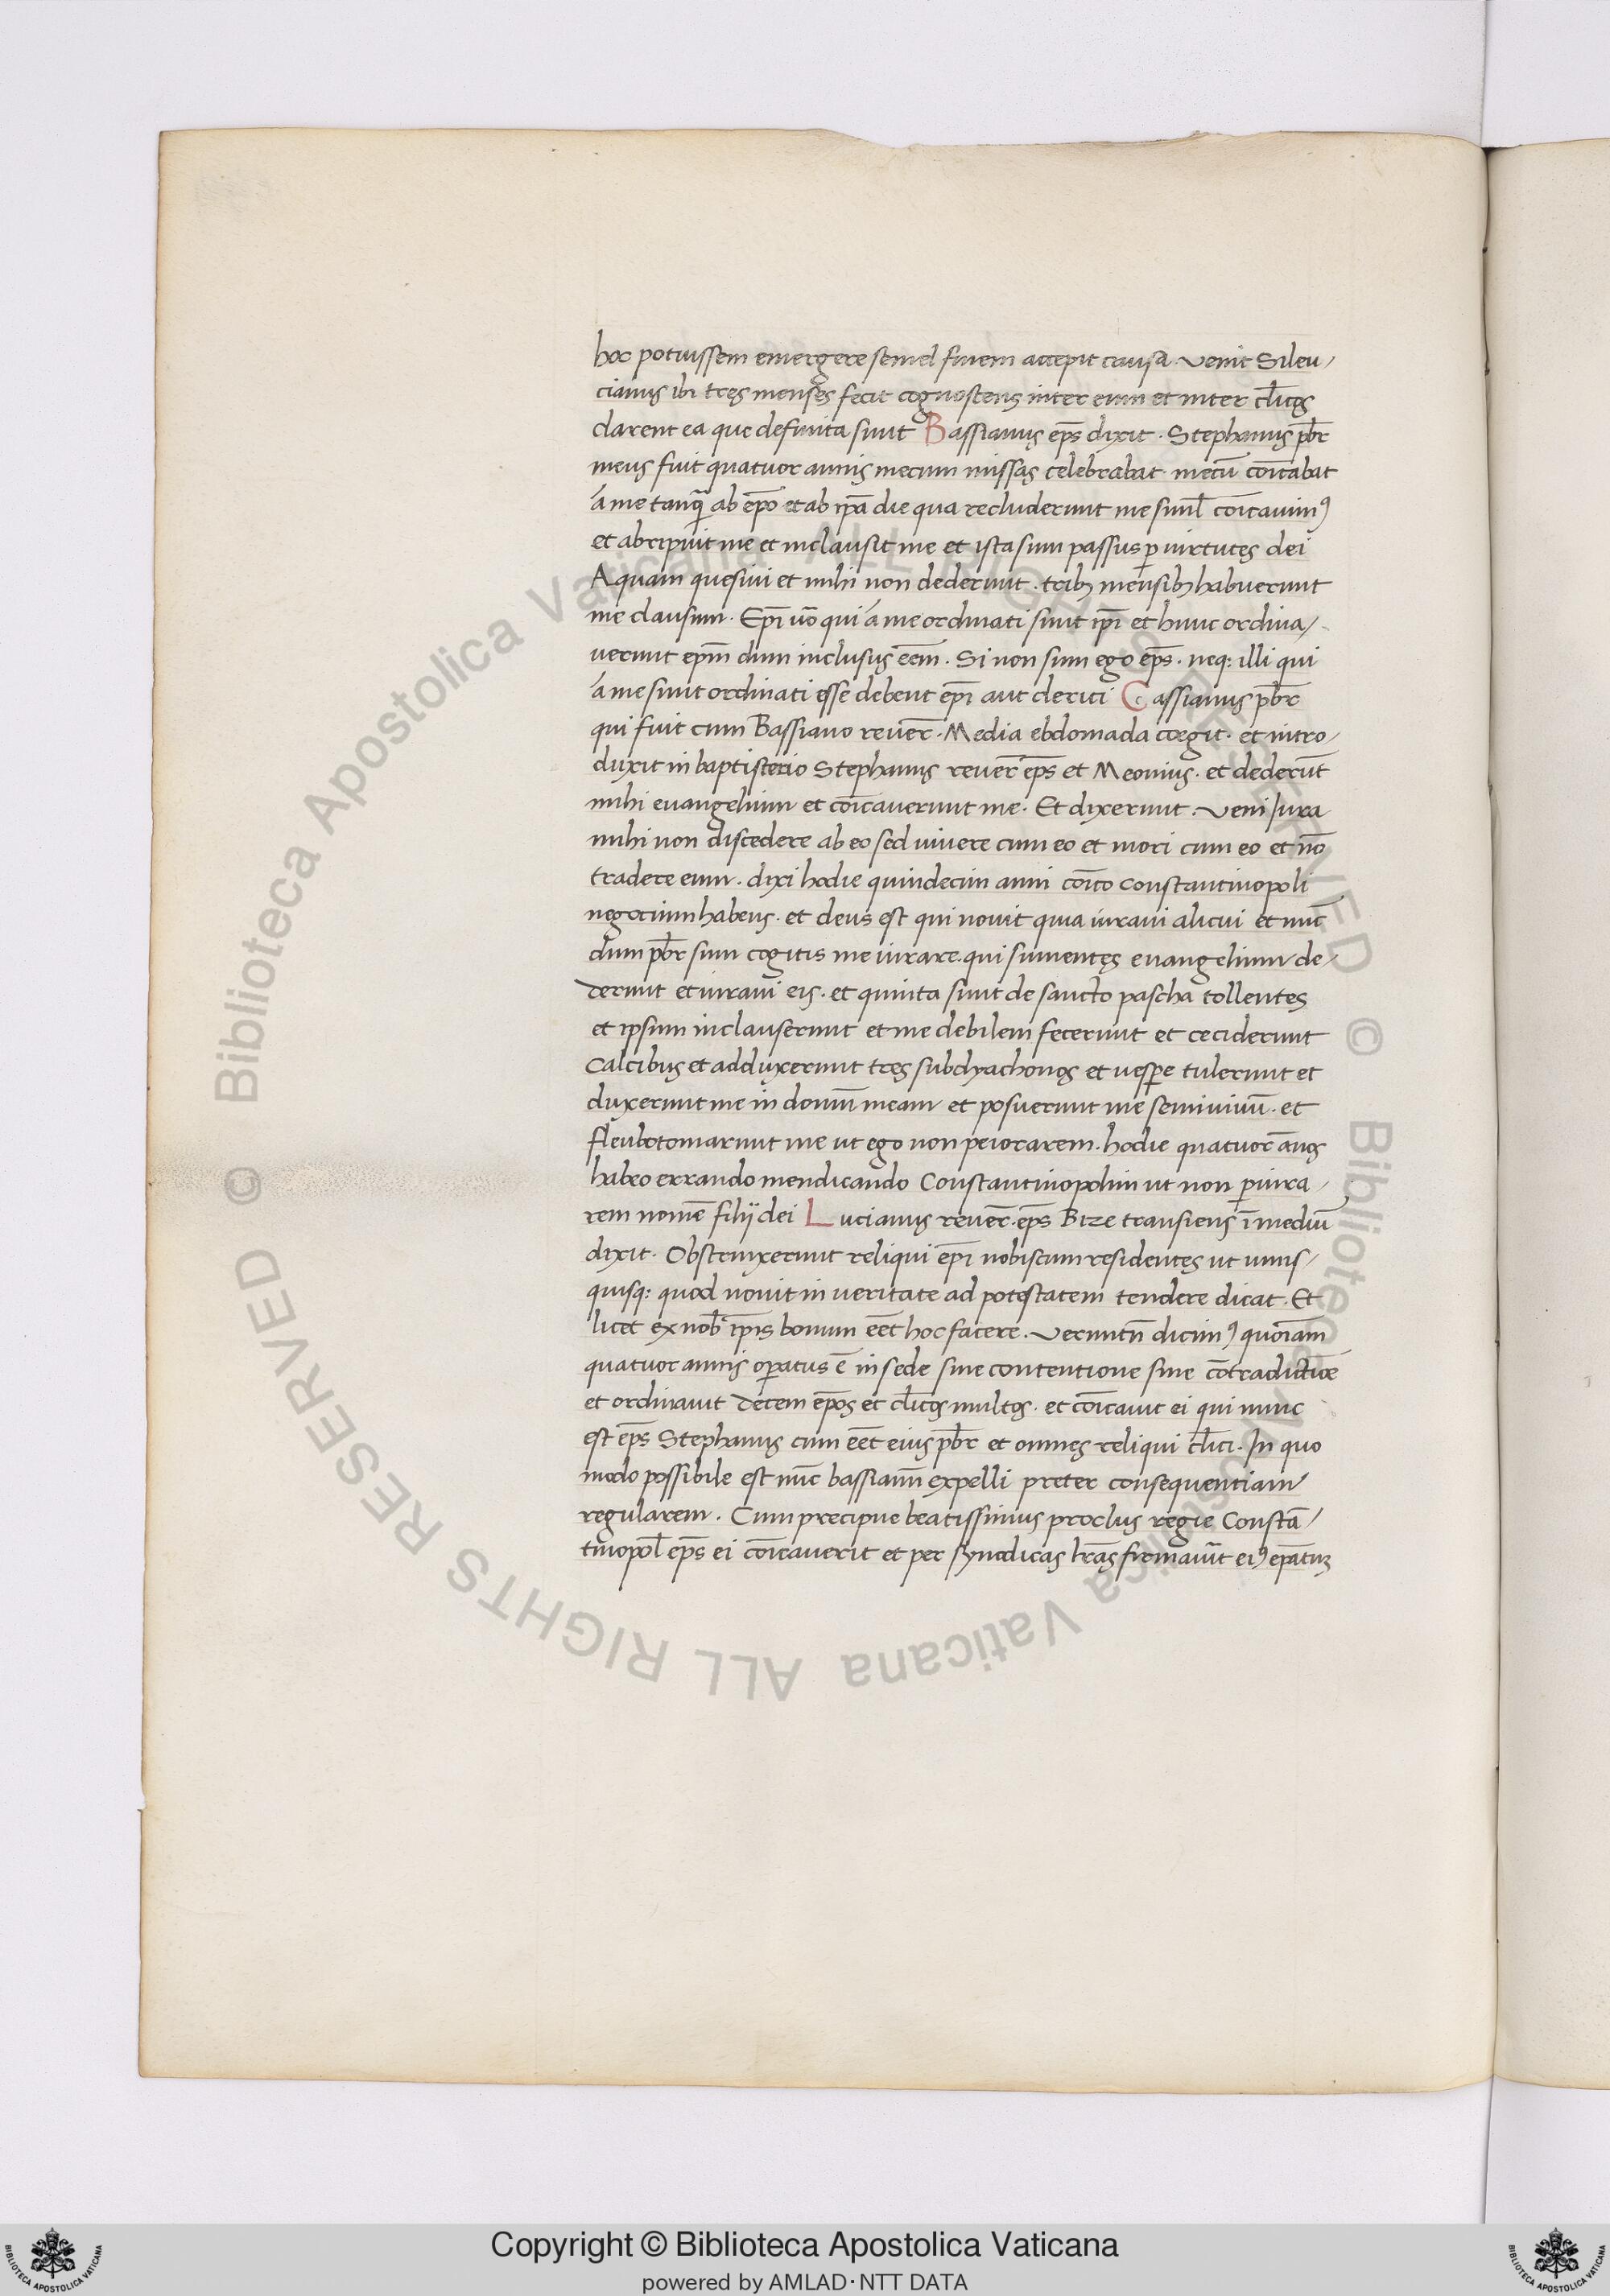 hoc potuissem emergere semel finem accepit causa. Venit Sileu/
cianus ibi tres menses fecit cognoscens inter eum et inter cl̅icos
darent ea que definita sunt Bassianus ep̅s dixit. Stephanus pb̅r
meus fuit quatuor annis mecum missas celebrabat. mecū coīcabat
á me tanq̄ ab ep̅o et ab ip̅a die qua recluderunt me siml̅ coīcauimꝰ
et abripuit me et inclausit me et ista sum passus ꝑ uirtutes dei
Aquam quesiui et mihi non dederunt. tribꝫ mensibꝫ habuerunt
me clausum. Ep̅i uō qui á me ordinati sunt ip̅i et hunc ordina/
uerunt ep̅m dum inclusus eēm. Si non sum ego ep̅s. neq: illi qui
á me sunt ordinati esse debent ep̅i aut clerici Cassianus pb̅r
qui fuit cum Bassiano reuer̅. Media ebdomada coegit. et intro/
duxit in baptisterio Stephanus reuer̅ ep̅s et Meonius. et dederūt
mihi euangelium et coīcauerunt me. Et dixerunt. Veni Iura
mihi non discedere ab eo sed uiuere cum eo et mori cum eo et nō
tradere eum. dixi hodie quindecim anni coīco Constantinopoli
negocium habens. et deus est qui nouit quia iuraui alicui et nūc
dum pb̅r sum cogitis me iurare. qui sumentes euangelium de/
derunt et iuraui eis. et quinta sunt de sancto pascha tollentes
et ipsum inclauserunt et me debilem fecerunt et ceciderunt
Calcibus et adduxerunt tres subdyachonos et uesꝑe tulerunt et
duxerunt me in domum meam et posuerunt me semiuiuū. et
fleubotomarunt me ut ego non peiorarem. hodie quatuor an̅os
habeo errando mendicando Constantinopolim ut non ꝑiura/
rem nomē filij dei Lucianus reuer̅. ep̅s Bize transiens ī mediū
dixit. Obstruxerunt reliqui ep̅i nobiscum residentes ut unus/
quisq: quod nouit in ueritate ad potestatem tendere dicat. Et
licet ex nob̅ ip̅is bonum eēt hoc facere. Verumtn̅ dicimꝰ quoniam
quatuor annis oꝑatus ē in sede sine contentione sine cōtradictiōe
et ordinauit decem ep̅os et cl̅icos multos. et coīcauit ei qui nunc
est ep̅s Stephanus cum eēt eius pb̅r et omnes reliqui cl̅ici. In quo
modo possibile est nūc bassianū expelli preter consequentiam
regularem. Cum precipue beatissimus proclus regie Constā/
tinopol̅ ep̅s ei coīcauerit et per synodicas lr̅as firmauīt eiꝰ ep̅atuꝫ
© Biblioteca Apostolica Vaticana ALL RIGHTS RESERVED © Biblioteca Apostolica Vaticana ALL RIGHTS RESERVED
Copyright © Biblioteca Apostolica Vaticana
powered by AMLAD·NTT DATA
BIBLIOTECA APOSTOLICA VATICANA
BIBLIOTECA APOSTOLICA VATICANA